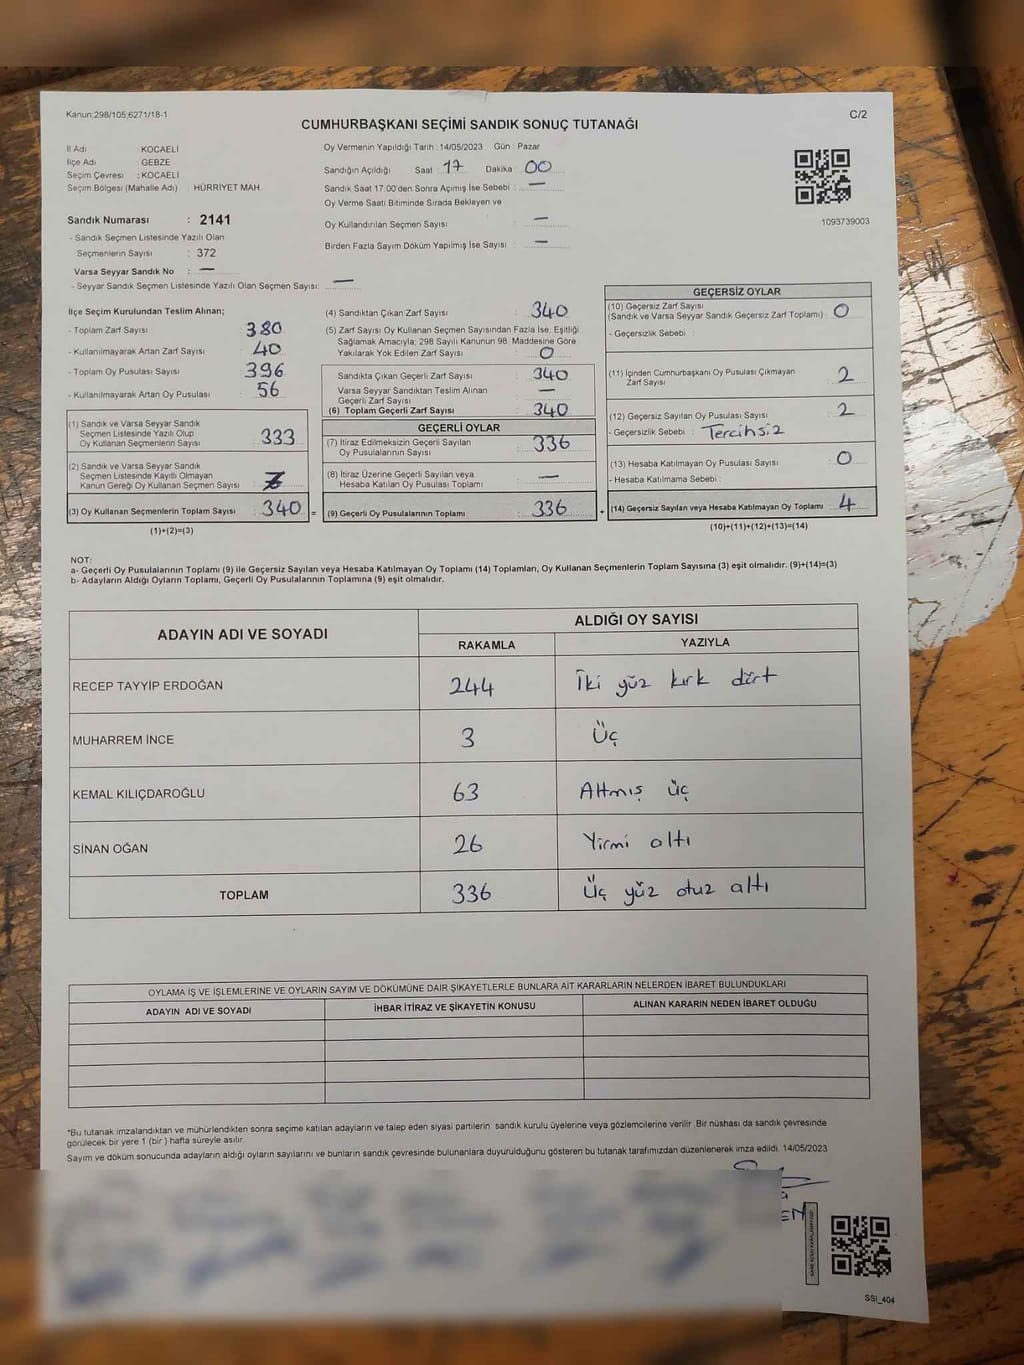 Kanun:298/105,6271/18-1
C/2
CUMHURBAŞKANI SEÇİMİ SANDIK SONUÇ TUTANAĞI
İl Adı : KOCAELİ
İlçe Adı : GEBZE
Seçim Çevresi : KOCAELİ
Seçim Bölgesi (Mahalle Adı) : HÜRRİYET MAH.
Sandık Numarası : 2141
- Sandık Seçmen Listesinde Yazılı Olan
Seçmenlerin Sayısı : 372
Varsa Seyyar Sandık No : —
- Seyyar Sandık Seçmen Listesinde Yazılı Olan Seçmen Sayısı: —
Oy Vermenin Yapıldığı Tarih : 14/05/2023 Gün : Pazar
Sandığın Açıldığı Saat 17 Dakika 00
Sandık Saat 17:00'den Sonra Açımış İse Sebebi : —
Oy Verme Saati Bitiminde Sırada Bekleyen ve
Oy Kullandırılan Seçmen Sayısı : —
Birden Fazla Sayım Döküm Yapılmış İse Sayısı : —
1093739003
İlçe Seçim Kurulundan Teslim Alınan;
- Toplam Zarf Sayısı : 380
- Kullanılmayarak Artan Zarf Sayısı : 40
- Toplam Oy Pusulası Sayısı : 396
- Kullanılmayarak Artan Oy Pusulası : 56
(1) Sandık ve Varsa Seyyar Sandık
Seçmen Listesinde Yazılı Olup
Oy Kullanan Seçmenlerin Sayısı : 333
(2) Sandık ve Varsa Seyyar Sandık
Seçmen Listesinde Kayıtlı Olmayan
Kanun Gereği Oy Kullanan Seçmen Sayısı : 7
(3) Oy Kullanan Seçmenlerin Toplam Sayısı : 340 =
(1)+(2)=(3)
(4) Sandıktan Çıkan Zarf Sayısı : 340
(5) Zarf Sayısı Oy Kullanan Seçmen Sayısından Fazla İse, Eşitliği
Sağlamak Amacıyla; 298 Sayılı Kanunun 98. Maddesine Göre
Yakılarak Yok Edilen Zarf Sayısı : 0
Sandıkta Çıkan Geçerli Zarf Sayısı : 340
Varsa Seyyar Sandıktan Teslim Alınan
Geçerli Zarf Sayısı : —
(6) Toplam Geçerli Zarf Sayısı : 340
GEÇERLİ OYLAR
(7) İtiraz Edilmeksizin Geçerli Sayılan
Oy Pusulalarının Sayısı : 336
(8) İtiraz Üzerine Geçerli Sayılan veya
Hesaba Katılan Oy Pusulası Toplamı : —
(9) Geçerli Oy Pusulalarının Toplamı : 336 +
GEÇERSİZ OYLAR
(10) Geçersiz Zarf Sayısı
(Sandık ve Varsa Seyyar Sandık Geçersiz Zarf Toplamı) : 0
- Geçersizlik Sebebi :
(11) İçinden Cumhurbaşkanı Oy Pusulası Çıkmayan
Zarf Sayısı : 2
(12) Geçersiz Sayılan Oy Pusulası Sayısı : 2
- Geçersizlik Sebebi : Tercihsiz
(13) Hesaba Katılmayan Oy Pusulası Sayısı : 0
- Hesaba Katılmama Sebebi :
(14) Geçersiz Sayılan veya Hesaba Katılmayan Oy Toplamı : 4
(10)+(11)+(12)+(13)=(14)
NOT:
a- Geçerli Oy Pusulalarının Toplamı (9) ile Geçersiz Sayılan veya Hesaba Katılmayan Oy Toplamı (14) Toplamları, Oy Kullanan Seçmenlerin Toplam Sayısına (3) eşit olmalıdır. (9)+(14)=(3)
b- Adayların Aldığı Oyların Toplamı, Geçerli Oy Pusulalarının Toplamına (9) eşit olmalıdır.
ADAYIN ADI VE SOYADI
ALDIĞI OY SAYISI
RAKAMLA YAZIYLA
RECEP TAYYİP ERDOĞAN 244 İki yüz kırk dört
MUHARREM İNCE 3 Üç
KEMAL KILIÇDAROĞLU 63 Altmış üç
SİNAN OĞAN 26 Yirmi altı
TOPLAM 336 Üç yüz otuz altı
OYLAMA İŞ VE İŞLEMLERİNE VE OYLARIN SAYIM VE DÖKÜMÜNE DAİR ŞİKAYETLERLE BUNLARA AİT KARARLARIN NELERDEN İBARET BULUNDUKLARI
ADAYIN ADI VE SOYADI İHBAR İTİRAZ VE ŞİKAYETİN KONUSU ALINAN KARARIN NEDEN İBARET OLDUĞU
*Bu tutanak imzalandıktan ve mühürlendikten sonra seçime katılan adayların ve talep eden siyasi partilerin sandık kurulu üyelerine veya gözlemcilerine verilir. Bir nüshası da sandık çevresinde
görülecek bir yere 1 (bir ) hafta süreyle asılır.
Sayım ve döküm sonucunda adayların aldığı oyların sayılarını ve bunların sandık çevresinde bulunanlara duyurulduğunu gösteren bu tutanak tarafımızdan düzenlenerek imza edildi. 14/05/2023
SSİ_404